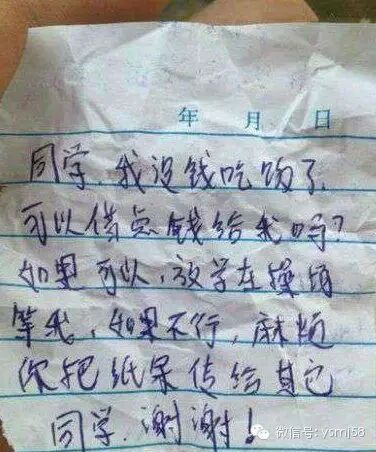 年 月 日
同学,我没钱吃饭了,
可以借点钱给我吗?
如果可以,放学在操场
等我,如果不行,麻烦
你把纸条传给其它
同学,谢谢!
微信号: ysmj58